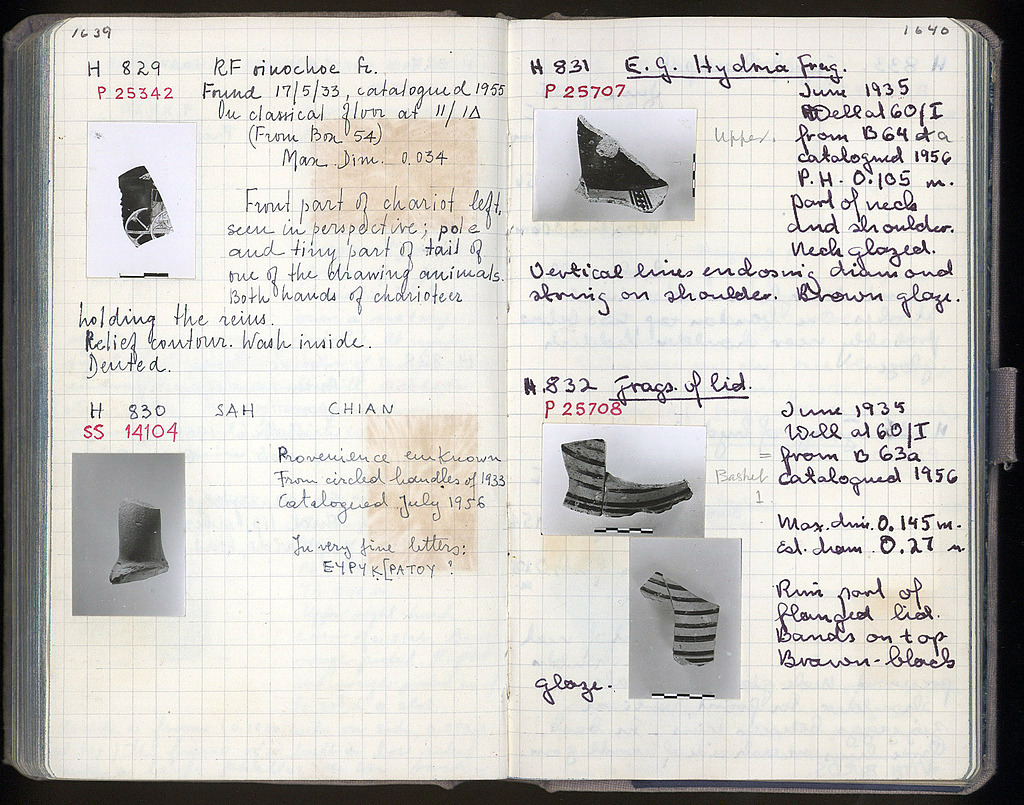 1639
H 829 RF oinochoe fr.
P 25342 Found 17/5/33, catalogued 1955
On classical floor at 11/ΙΔ
(From Box 54)
Max. Dim. 0.034
Front part of chariot left,
seen in perspective; pole
and tiny part of tail of
one of the drawing animals.
Both hands of charioteer
holding the reins.
Relief contour. Wash inside.
Dented.
H 830 SAH CHIAN
SS 14104
Provenience unknown
From circled handles of 1933
Catalogued July 1956
In very fine letters:
ΕΥΡΥΚ[ΡΑΤΟΥ ?
1640
H 831 E.G. Hydria frag.
P 25707 June 1935
Well at 60/I
Upper. from B 64 + a
catalogued 1956
P.H. 0.105 m.
Part of neck
and shoulder.
Neck glazed.
Vertical lines enclosing diamond
string on shoulder. Brown glaze.
H 832 Frags. of lid.
P 25708 June 1935
Well at 60/I
= from B 63a
Basket catalogued 1956
1
Max. dim. 0.145 m.
Est. diam. 0.27 m
Rim part of
flanged lid.
Bands on top
Brown-black
glaze.